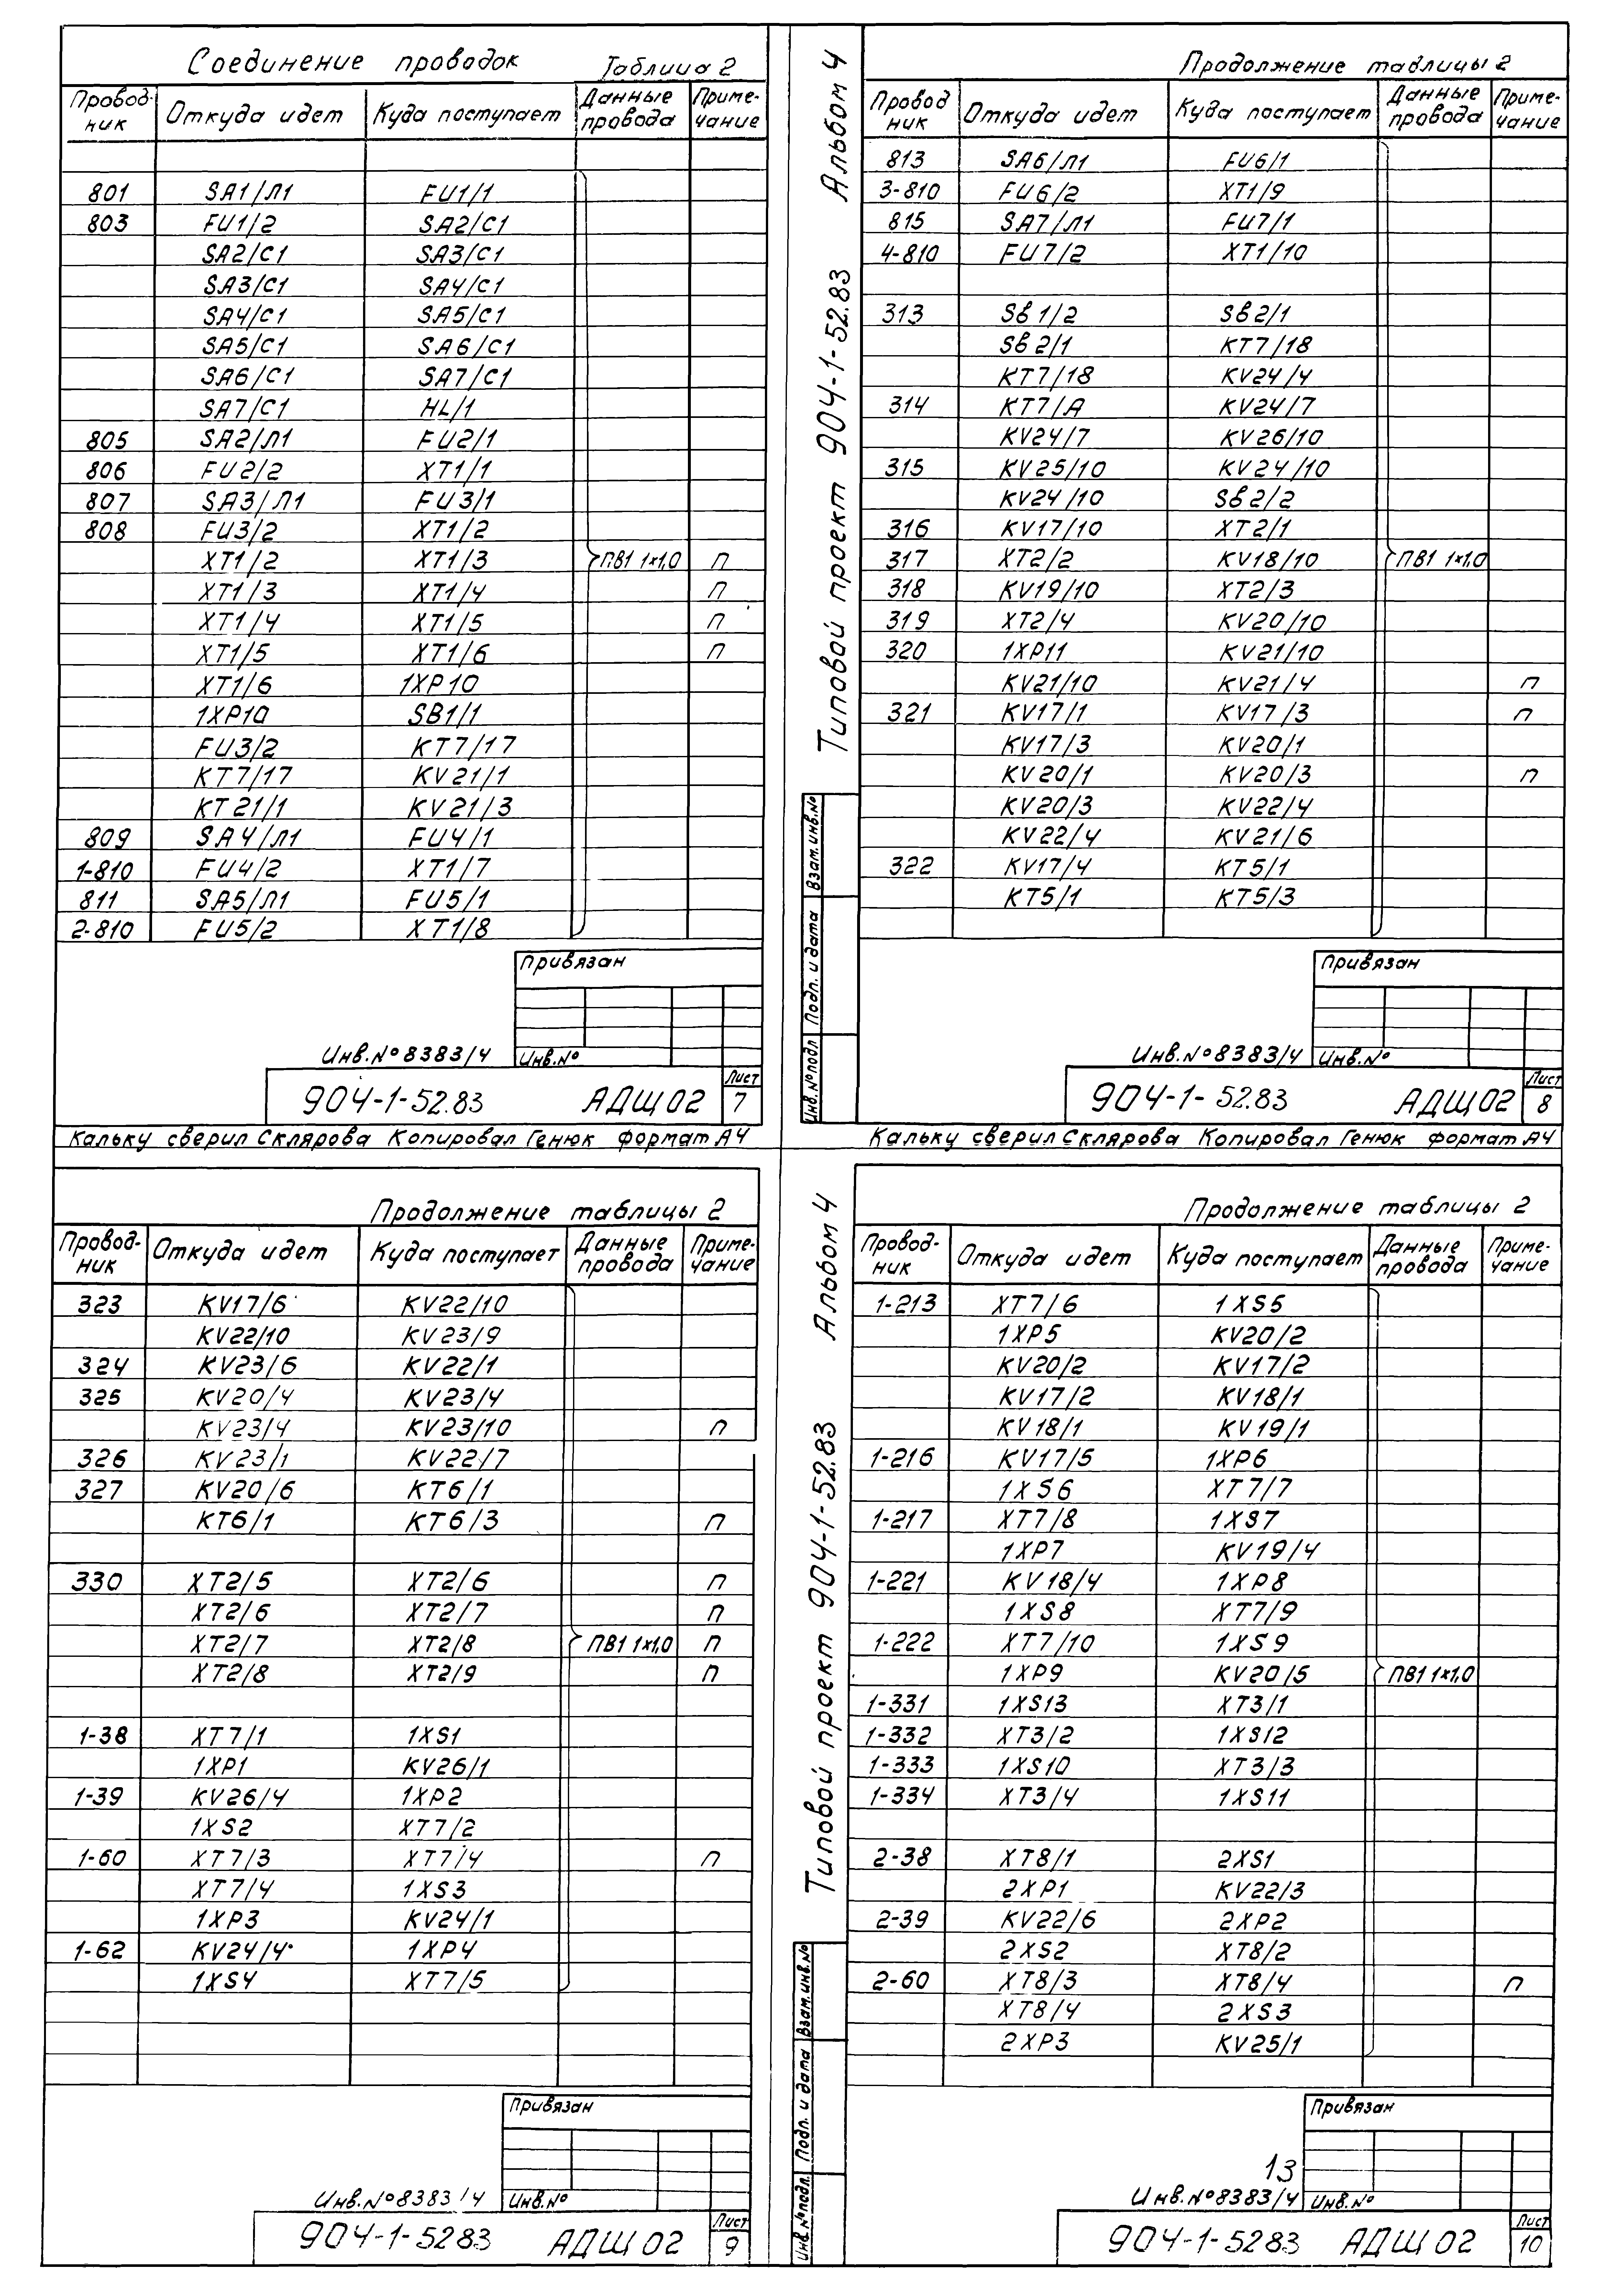 Соединение проводок Таблица 2
Провод-ник Откуда идет Куда поступает Данные провода Приме-чание
801 SA1/Л1 FU1/1
803 FU1/2 SA2/C1
SA2/C1 SA3/C1
SA3/C1 SA4/C1
SA4/C1 SA5/C1
SA5/C1 SA6/C1
SA6/C1 SA7/C1
SA7/C1 HL/1
805 SA2/Л1 FU2/1
806 FU2/2 XT1/1
807 SA3/Л1 FU3/1
808 FU3/2 XT1/2
XT1/2 XT1/3 ПВ1 1×1,0 п
XT1/3 XT1/4 п
XT1/4 XT1/5 п
XT1/5 XT1/6 п
XT1/6 1XP10
1XP10 SB1/1
FU3/2 KT7/17
KT7/17 KV21/1
KT21/1 KV21/3
809 SA4/Л1 FU4/1
1-810 FU4/2 XT1/7
811 SA5/Л1 FU5/1
2-810 FU5/2 XT1/8
Привязан
Инв.№8383/4 Инв.№
904-1-52.83 АДЩ02 Лист 7
Кальку сверил Склярова Копировал Генюк формат А4
Альбом 4
Типовой проект 904-1-52.83
Взам.инв.№
Подп. и дата
Инв.№подл
Продолжение таблицы 2
Провод ник Откуда идет Куда поступает Данные провода Приме-чание
813 SA6/Л1 FU6/1
3-810 FU6/2 XT1/9
815 SA7/Л1 FU7/1
4-810 FU7/2 XT1/10
313 Sв1/2 Sв2/1
Sв2/1 KT7/18
KT7/18 KV24/4
314 KT7/A KV24/7
KV24/7 KV26/10
315 KV25/10 KV24/10
KV24/10 Sв2/2
316 KV17/10 XT2/1
317 XT2/2 KV18/10 ПВ1 1×1,0
318 KV19/10 XT2/3
319 XT2/4 KV20/10
320 1XP11 KV21/10
KV21/10 KV21/4 п
321 KV17/1 KV17/3 п
KV17/3 KV20/1
KV20/1 KV20/3 п
KV20/3 KV22/4
KV22/4 KV21/6
322 KV17/4 KT5/1
KT5/1 KT5/3
Привязан
Инв.№8383/4 Инв.№
904-1-52.83 АДЩ02 Лист 8
Кальку сверил Склярова Копировал Генюк формат А4
Продолжение таблицы 2
Провод-ник Откуда идет Куда поступает Данные провода Приме-чание
323 KV17/6 KV22/10
KV22/10 KV23/9
324 KV23/6 KV22/1
325 KV20/4 KV23/4
KV23/4 KV23/10 п
326 KV23/1 KV22/7
327 KV20/6 KT6/1
KT6/1 KT6/3 п
330 XT2/5 XT2/6 п
XT2/6 XT2/7 п
XT2/7 XT2/8 ПВ1 1×1,0 п
XT2/8 XT2/9 п
1-38 XT7/1 1XS1
1XP1 KV26/1
1-39 KV26/4 1XP2
1XS2 XT7/2
1-60 XT7/3 XT7/4 п
XT7/4 1XS3
1XP3 KV24/1
1-62 KV24/4 1XP4
1XS4 XT7/5
Привязан
Инв.№8383/4 Инв.№
904-1-5283 АДЩ02 Лист 9
Альбом 4
Типовой проект 904-1-52.83
Взам.инв.№
Подп. и дата
Инв.№подл.
Продолжение таблицы 2
Провод-ник Откуда идет Куда поступает Данные провода Приме-чание
1-213 XT7/6 1XS5
1XP5 KV20/2
KV20/2 KV17/2
KV17/2 KV18/1
KV18/1 KV19/1
1-216 KV17/5 1XP6
1XS6 XT7/7
1-217 XT7/8 1XS7
1XP7 KV19/4
1-221 KV18/4 1XP8
1XS8 XT7/9
1-222 XT7/10 1XS9
1XP9 KV20/5 ПВ1 1×1,0
1-331 1XS13 XT3/1
1-332 XT3/2 1XS12
1-333 1XS10 XT3/3
1-334 XT3/4 1XS11
2-38 XT8/1 2XS1
2XP1 KV22/3
2-39 KV22/6 2XP2
2XS2 XT8/2
2-60 XT8/3 XT8/4 п
XT8/4 2XS3
2XP3 KV25/1
Привязан
13
Инв.№8383/4 Инв.№
904-1-5283 АДЩ02 Лист 10